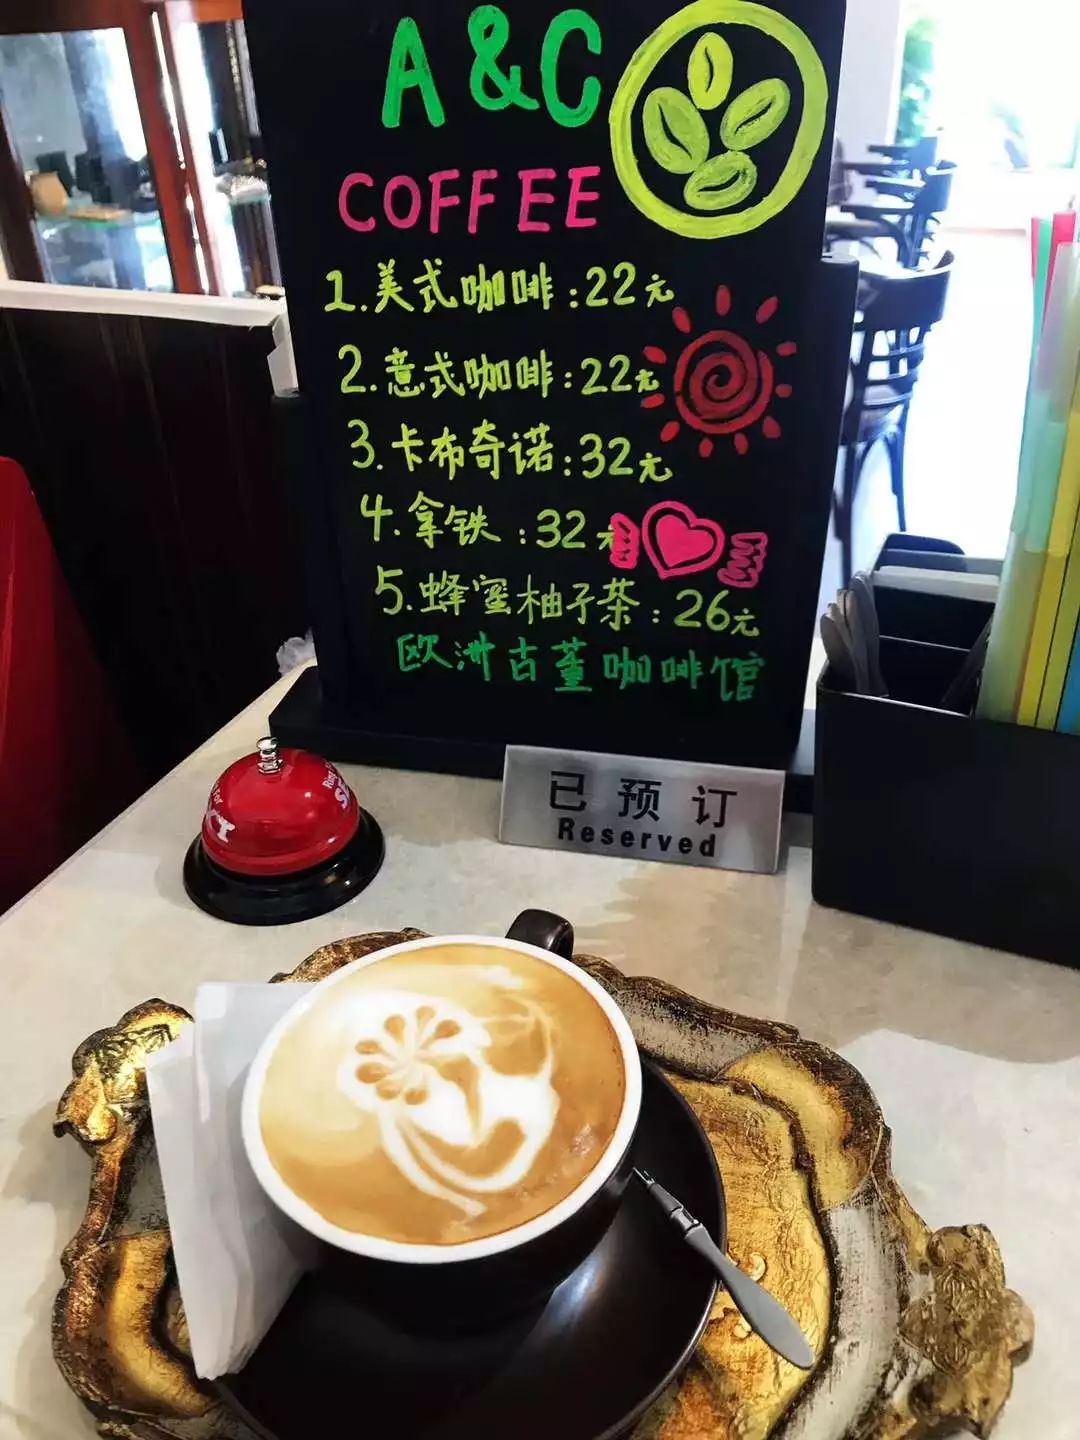 A & C
COFFEE
1.美式咖啡:22元
2.意式咖啡:22元
3.卡布奇诺:32元
4.拿铁:32元
5.蜂蜜柚子茶:26元
欧洲古董咖啡馆
已预订
Reserved
Ring For